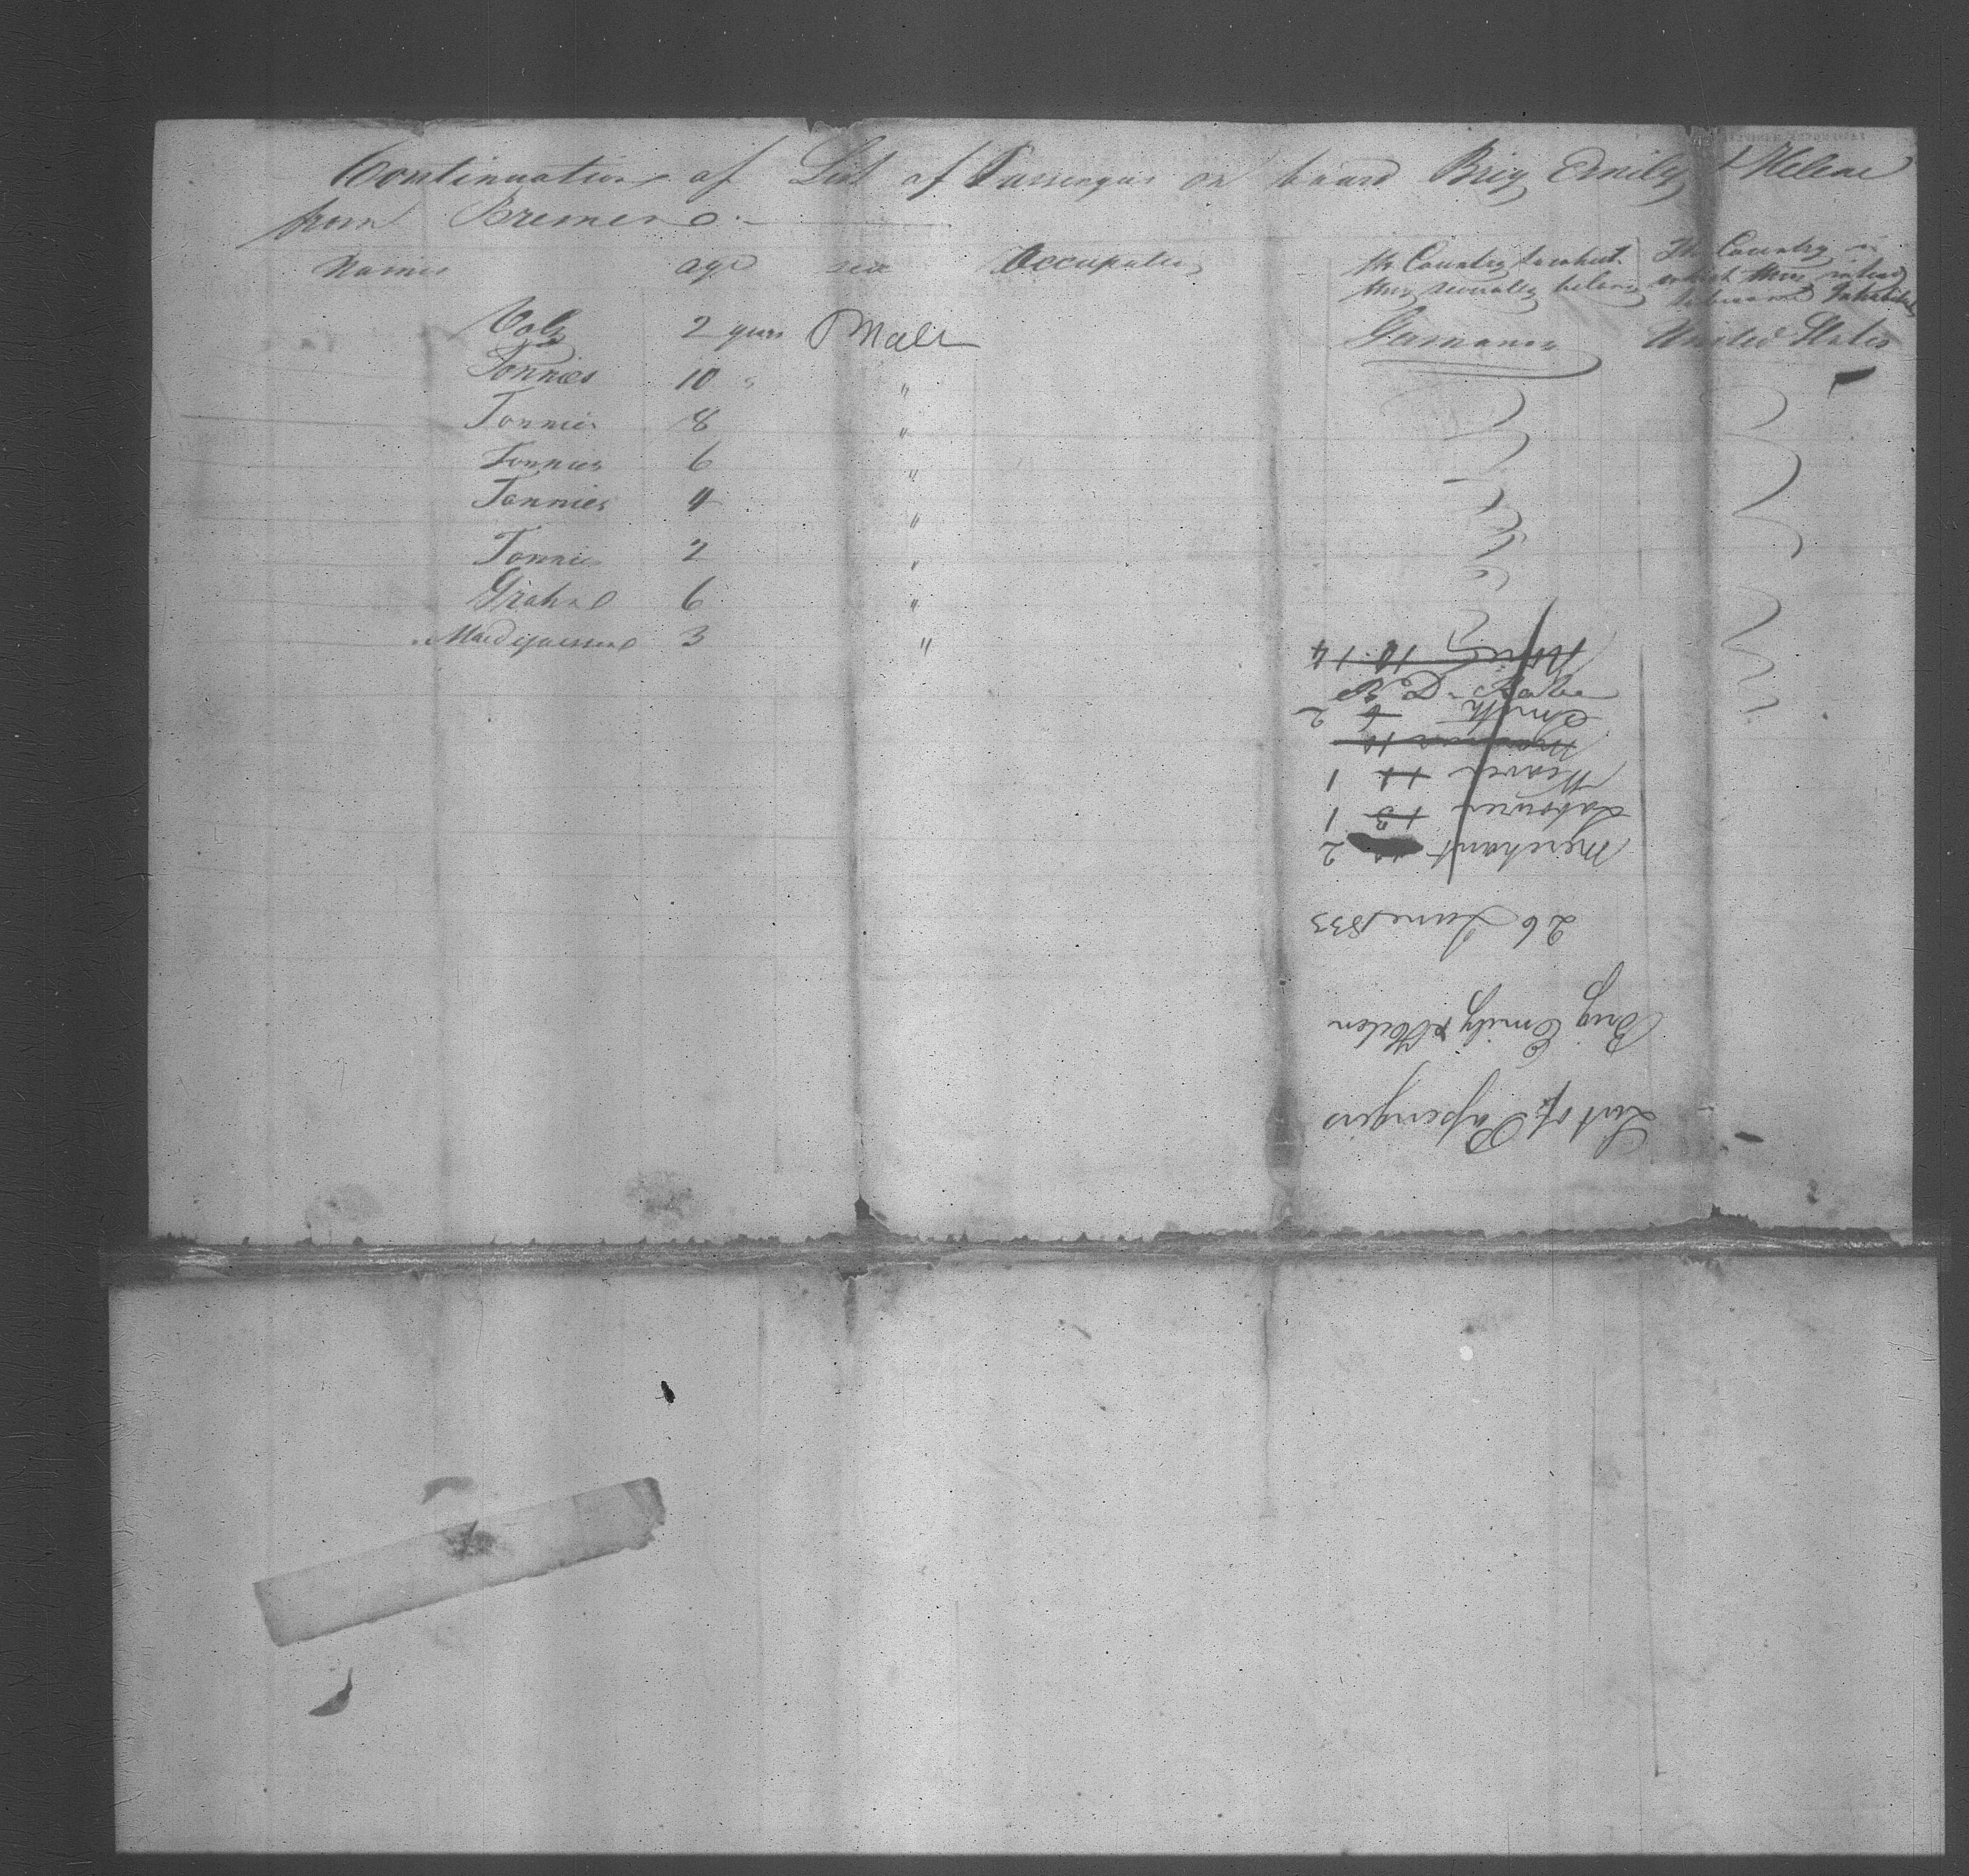 Continuation of List of Passengers on board Brig Emily & Helene
from Bremen
Names age sex Occupation the Country to which they severally belong The Country in which they intend to become Inhabitants
Volz 2 years Male Germany United States
Tonnies 10 " "
Tonnies 8 "
Tonnies 6 "
Tonnies 4 "
Tonnies 2 "
Grahn 6 "
3 "
List of Passengers
Brig Emily & Helen
26 June 1833
Merchant 2
Labourer 13 1
Weaver 11 1
10
Smith 6 2
10 14